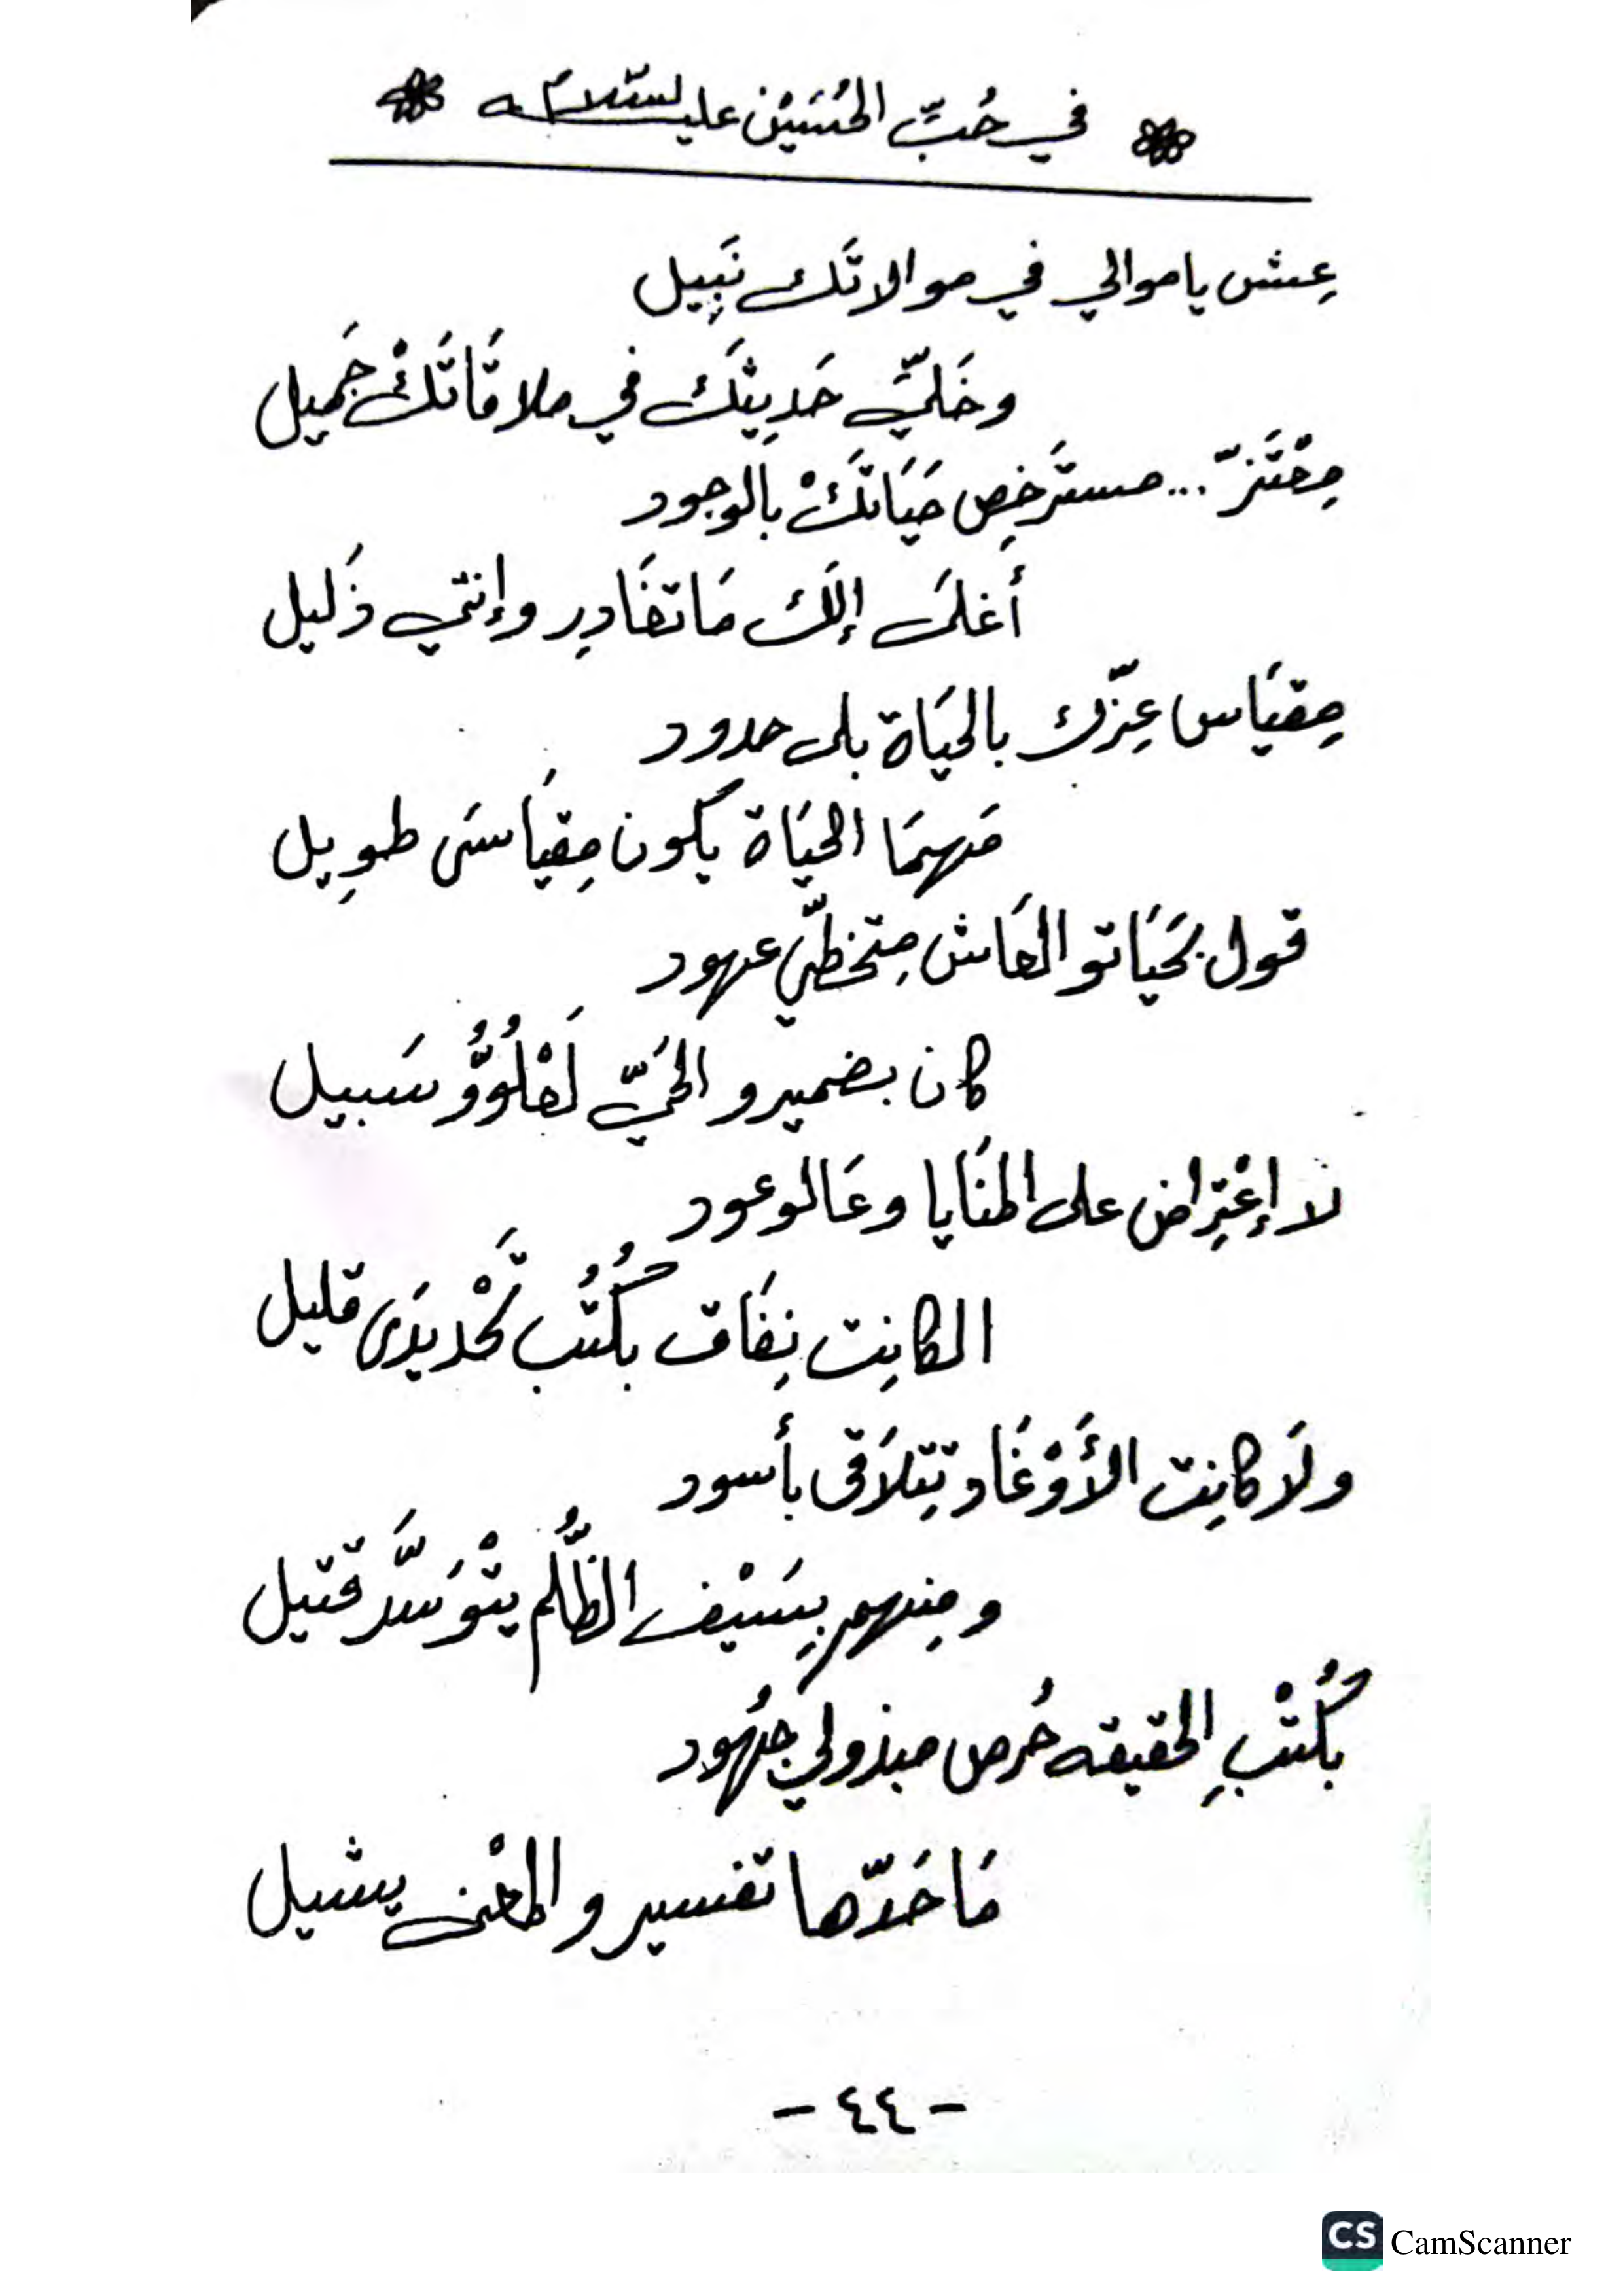 في حُبِّ الحُسَيْن عليه السّلام
عِش يا موالي في موالاتَك نَبِيل
وخَلّي حَدِيثَك في ملاقَاتَكْ جَميل
مِعْتَزّ... مسترَخِص حَيَاتَكْ بالوجود
أَغلَى إلَك مَا تغَادِر وإنتي ذَليل
مِقيَاس عِزّك بالحيَاة بلى حدود
مَهمَا الحيَاة يكون مِقيَاسَى طوِيل
قول بحَيَاتو العَاش مِتخطّي عهود
كان بضميرو الحَيّ لَعْلُوُّو سَبيل
لا إعْتِراض على المنَايا وعَالوعود
الكانِت نِفَاق بكُتُب تَحْديدَى قليل
ولَا كانِت الأَوْغَاد تِتلَاقى بأسود
ومِنهم بِسَيْف الظُّلم يتْوَسَّد قتيل
بكُتْبِ الحقيقه حُرص مبذولي جُهود
مَا حَدّها تفسير والمعْنى يشيل
- ٤٤ -
CS CamScanner